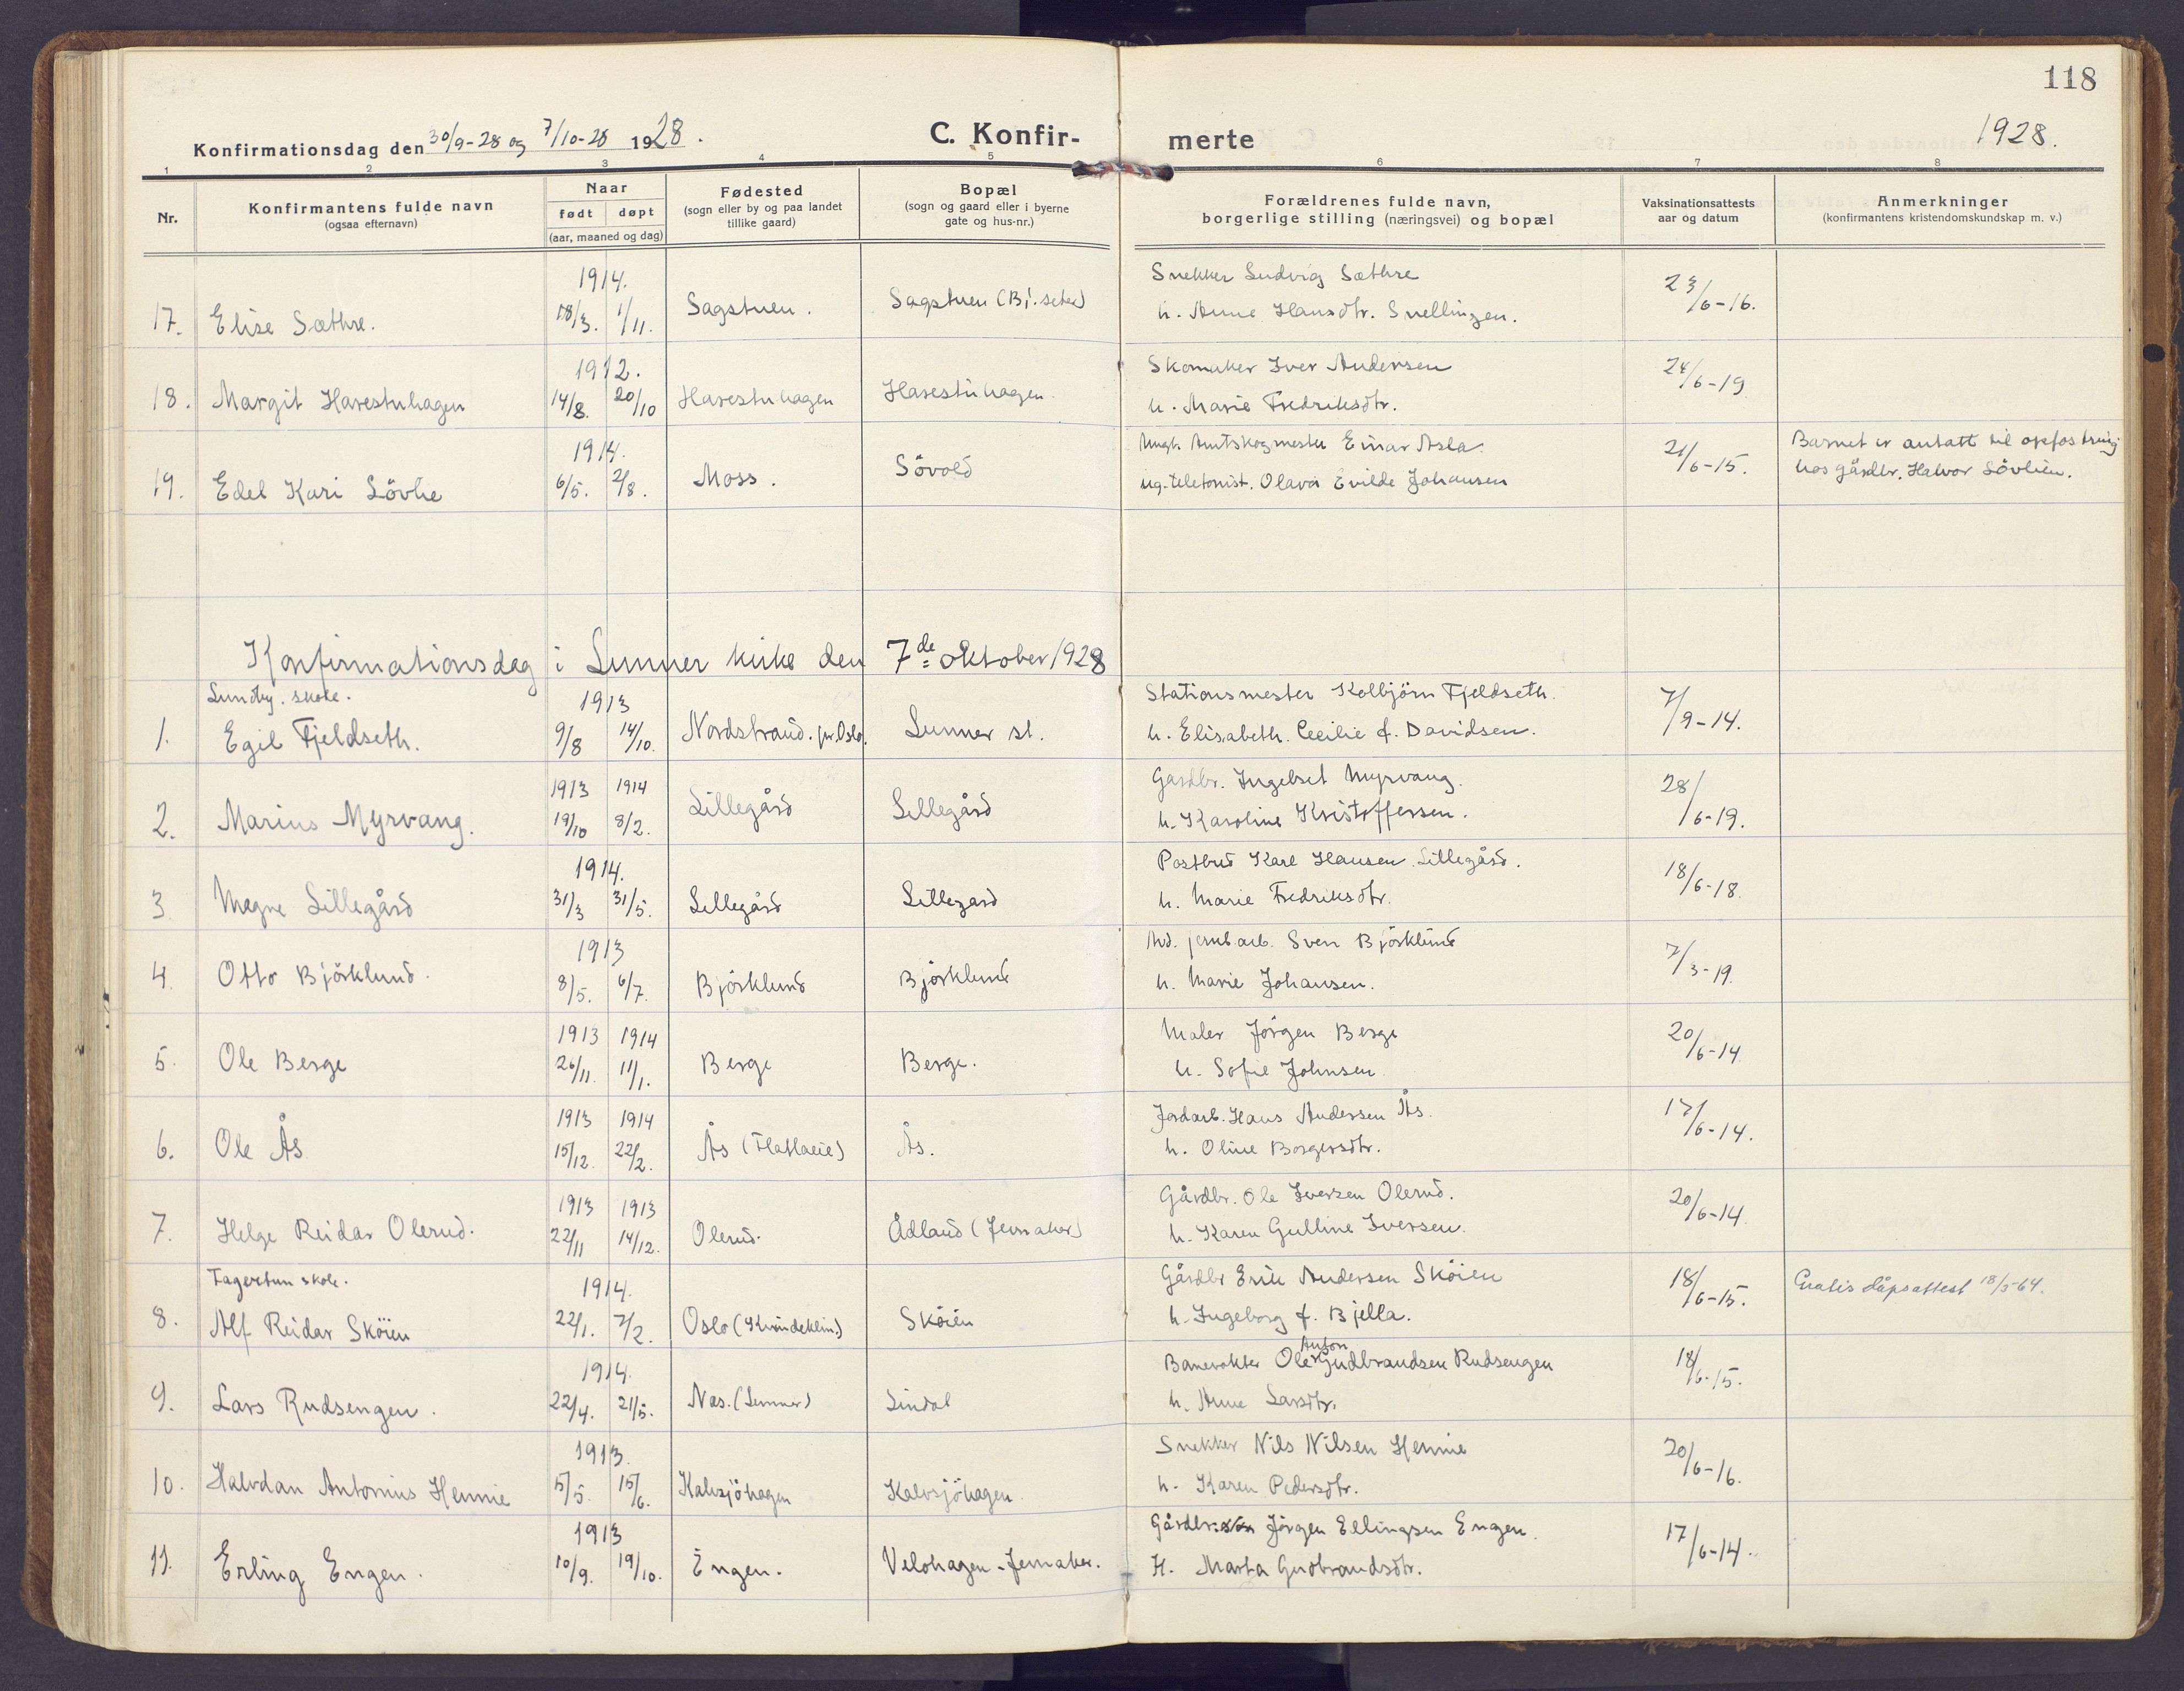 118
Konfirmationsdag den 30/9-28 og 7/10-28 1928.
C. Konfir- merte
1928.
1 2 3 4 5 6 7 8
Nr.
Konfirmantens fulde navn
(ogsaa efternavn)
Naar
født døpt
(aar, maaned og dag)
Fødested
(sogn eller by og paa landet
tillike gaard)
Bopæl
(sogn og gaard eller i byerne
gate og hus-nr.)
Forældrenes fulde navn,
borgerlige stilling (næringsvei) og bopæl
Vaksinationsattests
aar og datum
Anmerkninger
(konfirmantens kristendomskundskap m. v.)
1914.
17. Elise Sæthre. 18/3. 1/11. Sagstuen. Sagstuen
Snekker Ludvig Sæthre
h. Anne Hansdtr. Snellingen.
23/6-16.
1912.
18. Margit Harestuhagen 14/8. 20/10 Harestuhagen Harestuhagen
Skomaker Iver Andersen
h. Marie Fredriksdtr.
24/6-19
1914.
19. Edel Kari Lövlie 6/5. 2/8. Moss. Sövold
Ungk. Amtskogmester Einar Asla.
ug. telefonist. Olava Evilde Johansen
21/6-15.
Barnet er antatt til opfostring
hos gårdbr. Halvor Lövlien.
Konfirmationsdag i Lunner kirke den 7de oktober 1928
Lundby. skole.
1913
1. Egil Fjeldseth. 9/8 14/10. Nordstrand. pr. Oslo. Lunner st.
Stationsmester Kolbjörn Fjeldseth.
h. Elisabeth. Cecilie f. Davidsen.
7/9-14.
1913 1914
2. Marius Myrvang. 19/10 8/2. Lillegård Lillegård
Gårdbr. Ingebret Myrvang.
h. Karoline Kristoffersen.
28/6-19.
1914.
3. Magne Lillegård 31/3 31/5. Lillegård Lillegård
Postbud Karl Hansen Lillegård.
h. Marie Fredriksdtr.
18/6-18.
1913
4. Otto Björklund. 8/5. 6/7. Björklund Björklund
jernb.arb. Sven Björklund
h. Marie Johansen.
7/3-19.
1913 1914
5. Ole Berge 26/11. 11/1. Berge Berge.
Maler Jörgen Berge
h. Sofie Johnsen.
20/6-14
1913 1914
6. Ole Ås 15/12. 22/2. Ås (Flatlaeie) Ås.
Jordarb. Hans Andersen Ås.
h. Oline Borgersdtr.
17/6-14.
1913 1913
7. Helge Reidar Olerud. 22/11 14/12. Olerud. Ådland (Jevnaker)
Gårdbr. Ole Iversen Olerud.
h. Karen Gulline Iversen.
20/6-14
Fagertun skole.
1914.
8. Alf Reidar Sköien 22/1. 7/2. Oslo (Kvindeklin.) Sköien
Gårdbr Erik Andersen Sköien
h. Ingeborg f. Bjella.
18/6-15.
Gratis dåpsattest 18/5-64.
1914.
9. Lars Rudsengen. 22/4. 21/5. Næs. (Lunner) Lindal
Anton
Banevokter Ole Gudbrandsen Rudsengen
h. Anne Larsdtr.
18/6-15.
1913.
10. Halvdan Antonius Hennie 5/5. 15/6. Kalvsjöhagen Kalvsjöhagen.
Snekker Nils Nilsen Hennie
h. Karen Pedersdtr.
20/6-16.
1913
11. Erling Engen. 10/9. 19/10. Engen. Velohagen - Jevnaker.
Gårdbr. Jörgen Ellingsen Engen.
H. Marta Gudbrandsdtr.
17/6-14.